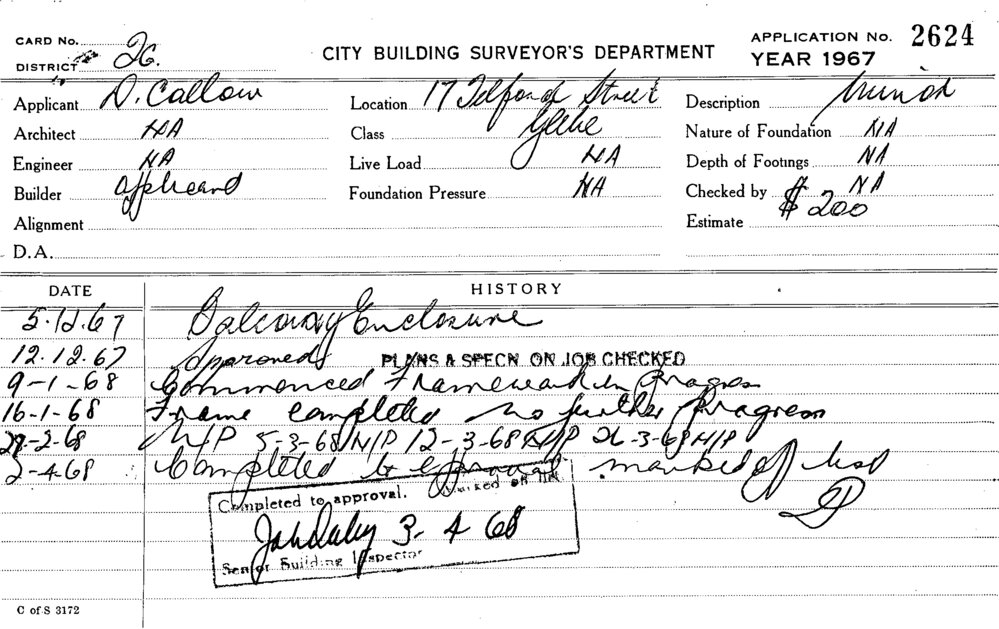 CARD No.
DISTRICT 26.
CITY BUILDING SURVEYOR'S DEPARTMENT
APPLICATION No. 2624
YEAR 1967
Applicant D. Callow
Location 17 Street
Glebe
Description Minor
Architect NA
Class
Nature of Foundation NA
Engineer NA
Live Load NA
Depth of Footings NA
Builder applicant
Foundation Pressure NA
Checked by NA
Alignment
Estimate $200
D.A.
DATE HISTORY
5.12.67 Balcony Enclosure
12.12.67 Approved PLANS & SPECN. ON JOB CHECKED
9-1-68 Commenced Framework in Progress
16-1-68 Frame completed no further Progress
2-68 N/P 5-3-68 N/P 12-3-68 N/P 26-3-68 N/P
2-4-68 Completed to approval marked off list
Completed to approval. Marked off list.
3-4 68
Senior Building Inspector
C of S 3172